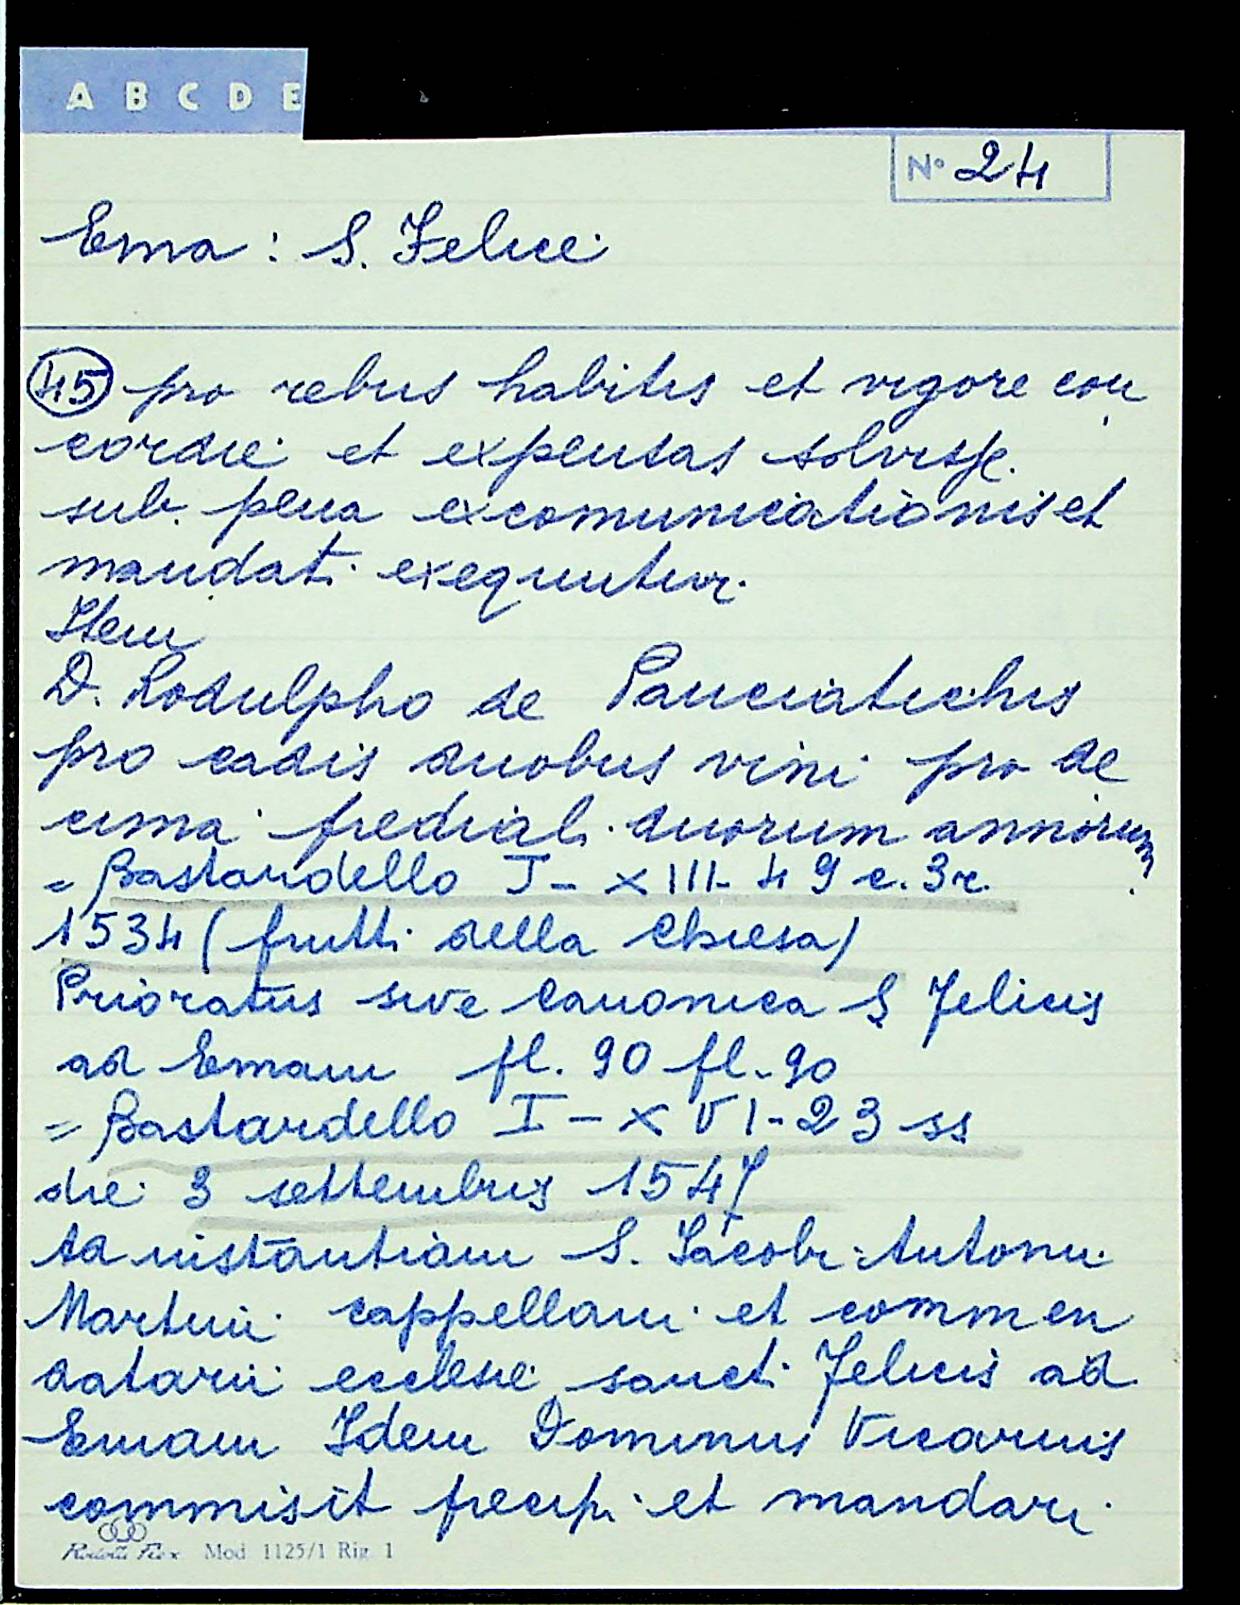 A B C D E
N° 24
Ema: S. Felice
45 pro rebus habitis et vigore con
cordie et expensas solvisse.
sub. pena excomunicationis et
mandati exequntur.
Item
D. Rodulpho de Panciatichis
pro cadis duobus vini pro de
cima prediali duorum annorum
= Bastardello I - XIII - 49 c. 3r.
1534 (frutti della Chiesa)
Prioratus sive Canonica S. Felicis
ad Emam fl. 90 fl. 90
= Bastardello I - XVI - 23 ss
die 3 settembris 1547
Ad instantiam S. Jacobi Antonii
Martini cappellani et commen
datarii ecclesie sancti Felicis ad
Emam Idem Dominus Vicarius
commisit precipi et mandari
Mod 1125/1 Rig 1